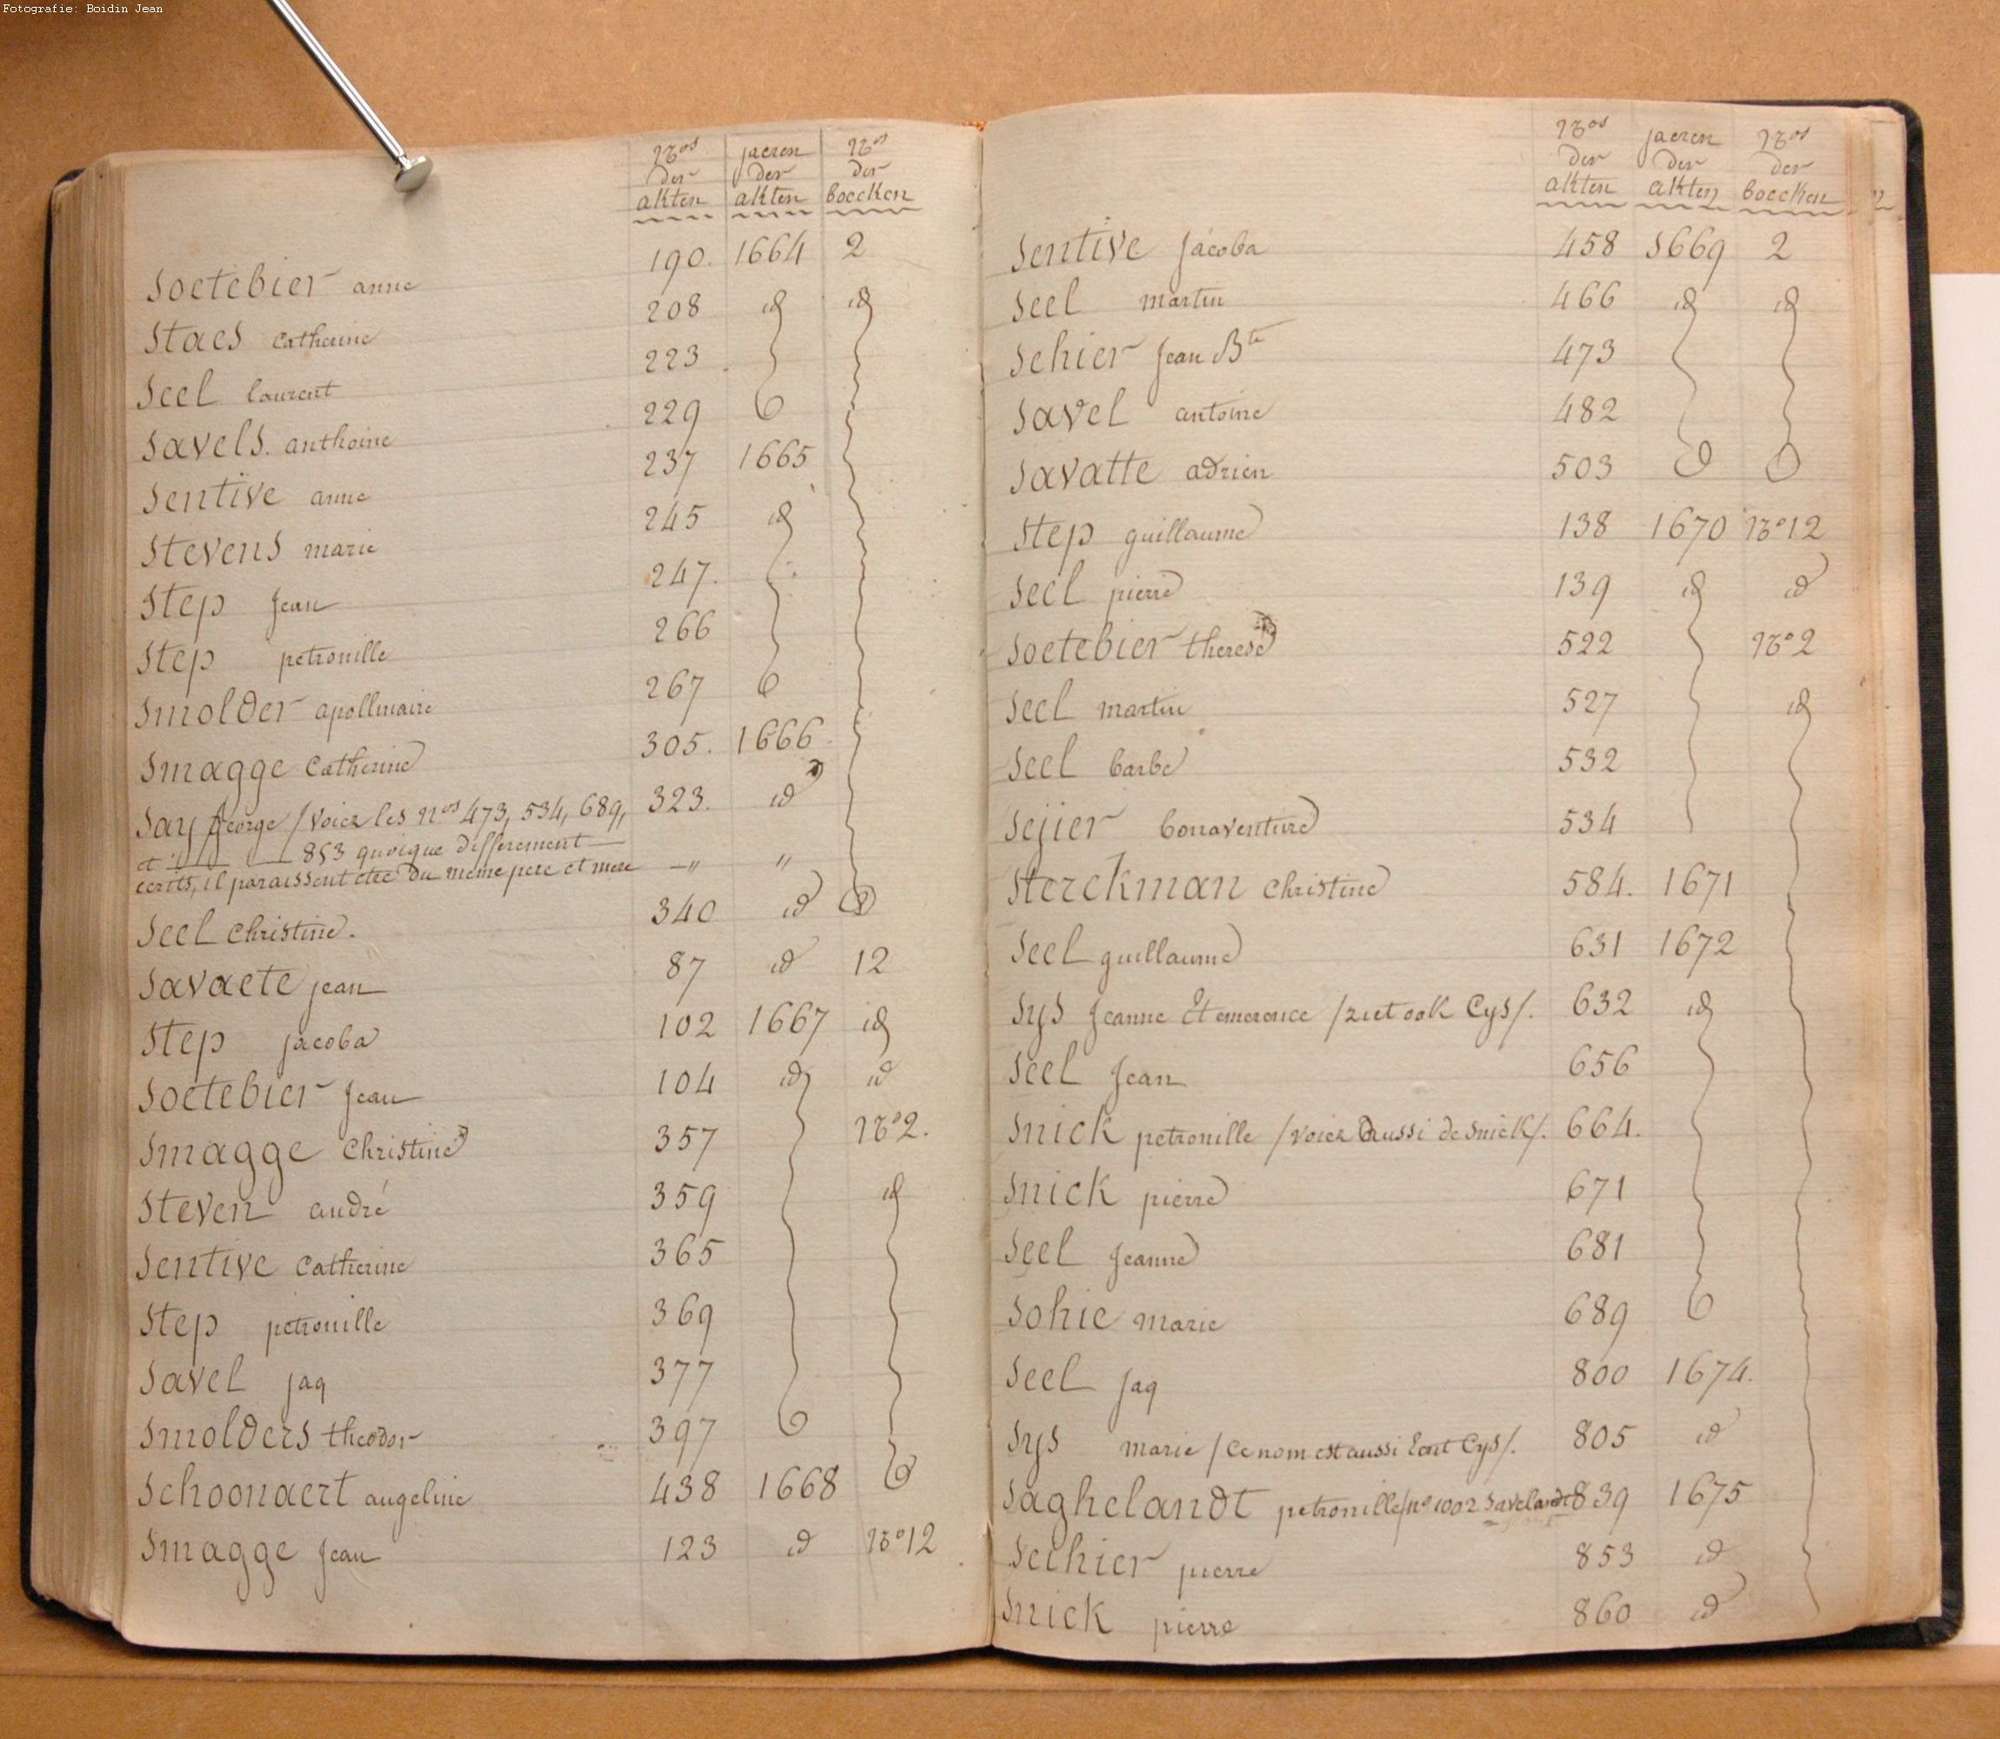 Fotografie: Boidin Jean
Nros jaeren Nros
der der der
akten akten boecken
Soetebier anne 190. 1664 2
Staes Catherine 208 id id
Seel laurent 223
Savels. anthoine 229
Sentive anne 237 1665
Stevens marie 245 id
Step Jean 247.
Step petronille 266
Smolder apollinaire 267
Smagge Catherine 305. 1666
Say george /voiez les nos 473, 534, 689, 323. id
et 853 quoique differement
ecrits, il paraissent etre du meme pere et mere —〃 〃
Seel Christine. 340 id
Savaete jean 87 id 12
Step jacoba 102 1667 id
Soetebier Jean 104 id id
Smagge Christine 357 No 2.
Steven andré 359 id
Sentive Catherine 365
Step petronille 369
Savel jaq 377
Smolders theodor 397
Schoonaert angeline 438 1668
Smagge Jean 123 id No 12
Nros jaeren Nros
der der der
akten akten boecken
Sentive Jacoba 458 1669 2
Seel martin 466 id id
Sehier Jean Bte 473
Savel antoine 482
Savatte adrien 503
Step guillaume 138 1670 No 12
Seel pierre 139 id id
Soetebier therese 522 No 2
Seel martin 527 id
Seel barbe 532
Sejier bonaventure 534
Sterckman Christine 584. 1671
Seel guillaume 631 1672
Sys Jeanne Et emerence /ziet ook Cys/. 632 id
Seel Jean 656
Snick petronille /voiez aussi de Snick/. 664.
Snick pierre 671
Seel Jeanne 681
Sohie marie 689
Seel Jaq 800 1674.
Sys marie /Ce nom est aussi Ecrit Cys/. 805 id
Saghelandt petronille/no 1002 Savelandt 839 1675
Seihier pierre 853 id
Snick pierre 860 id